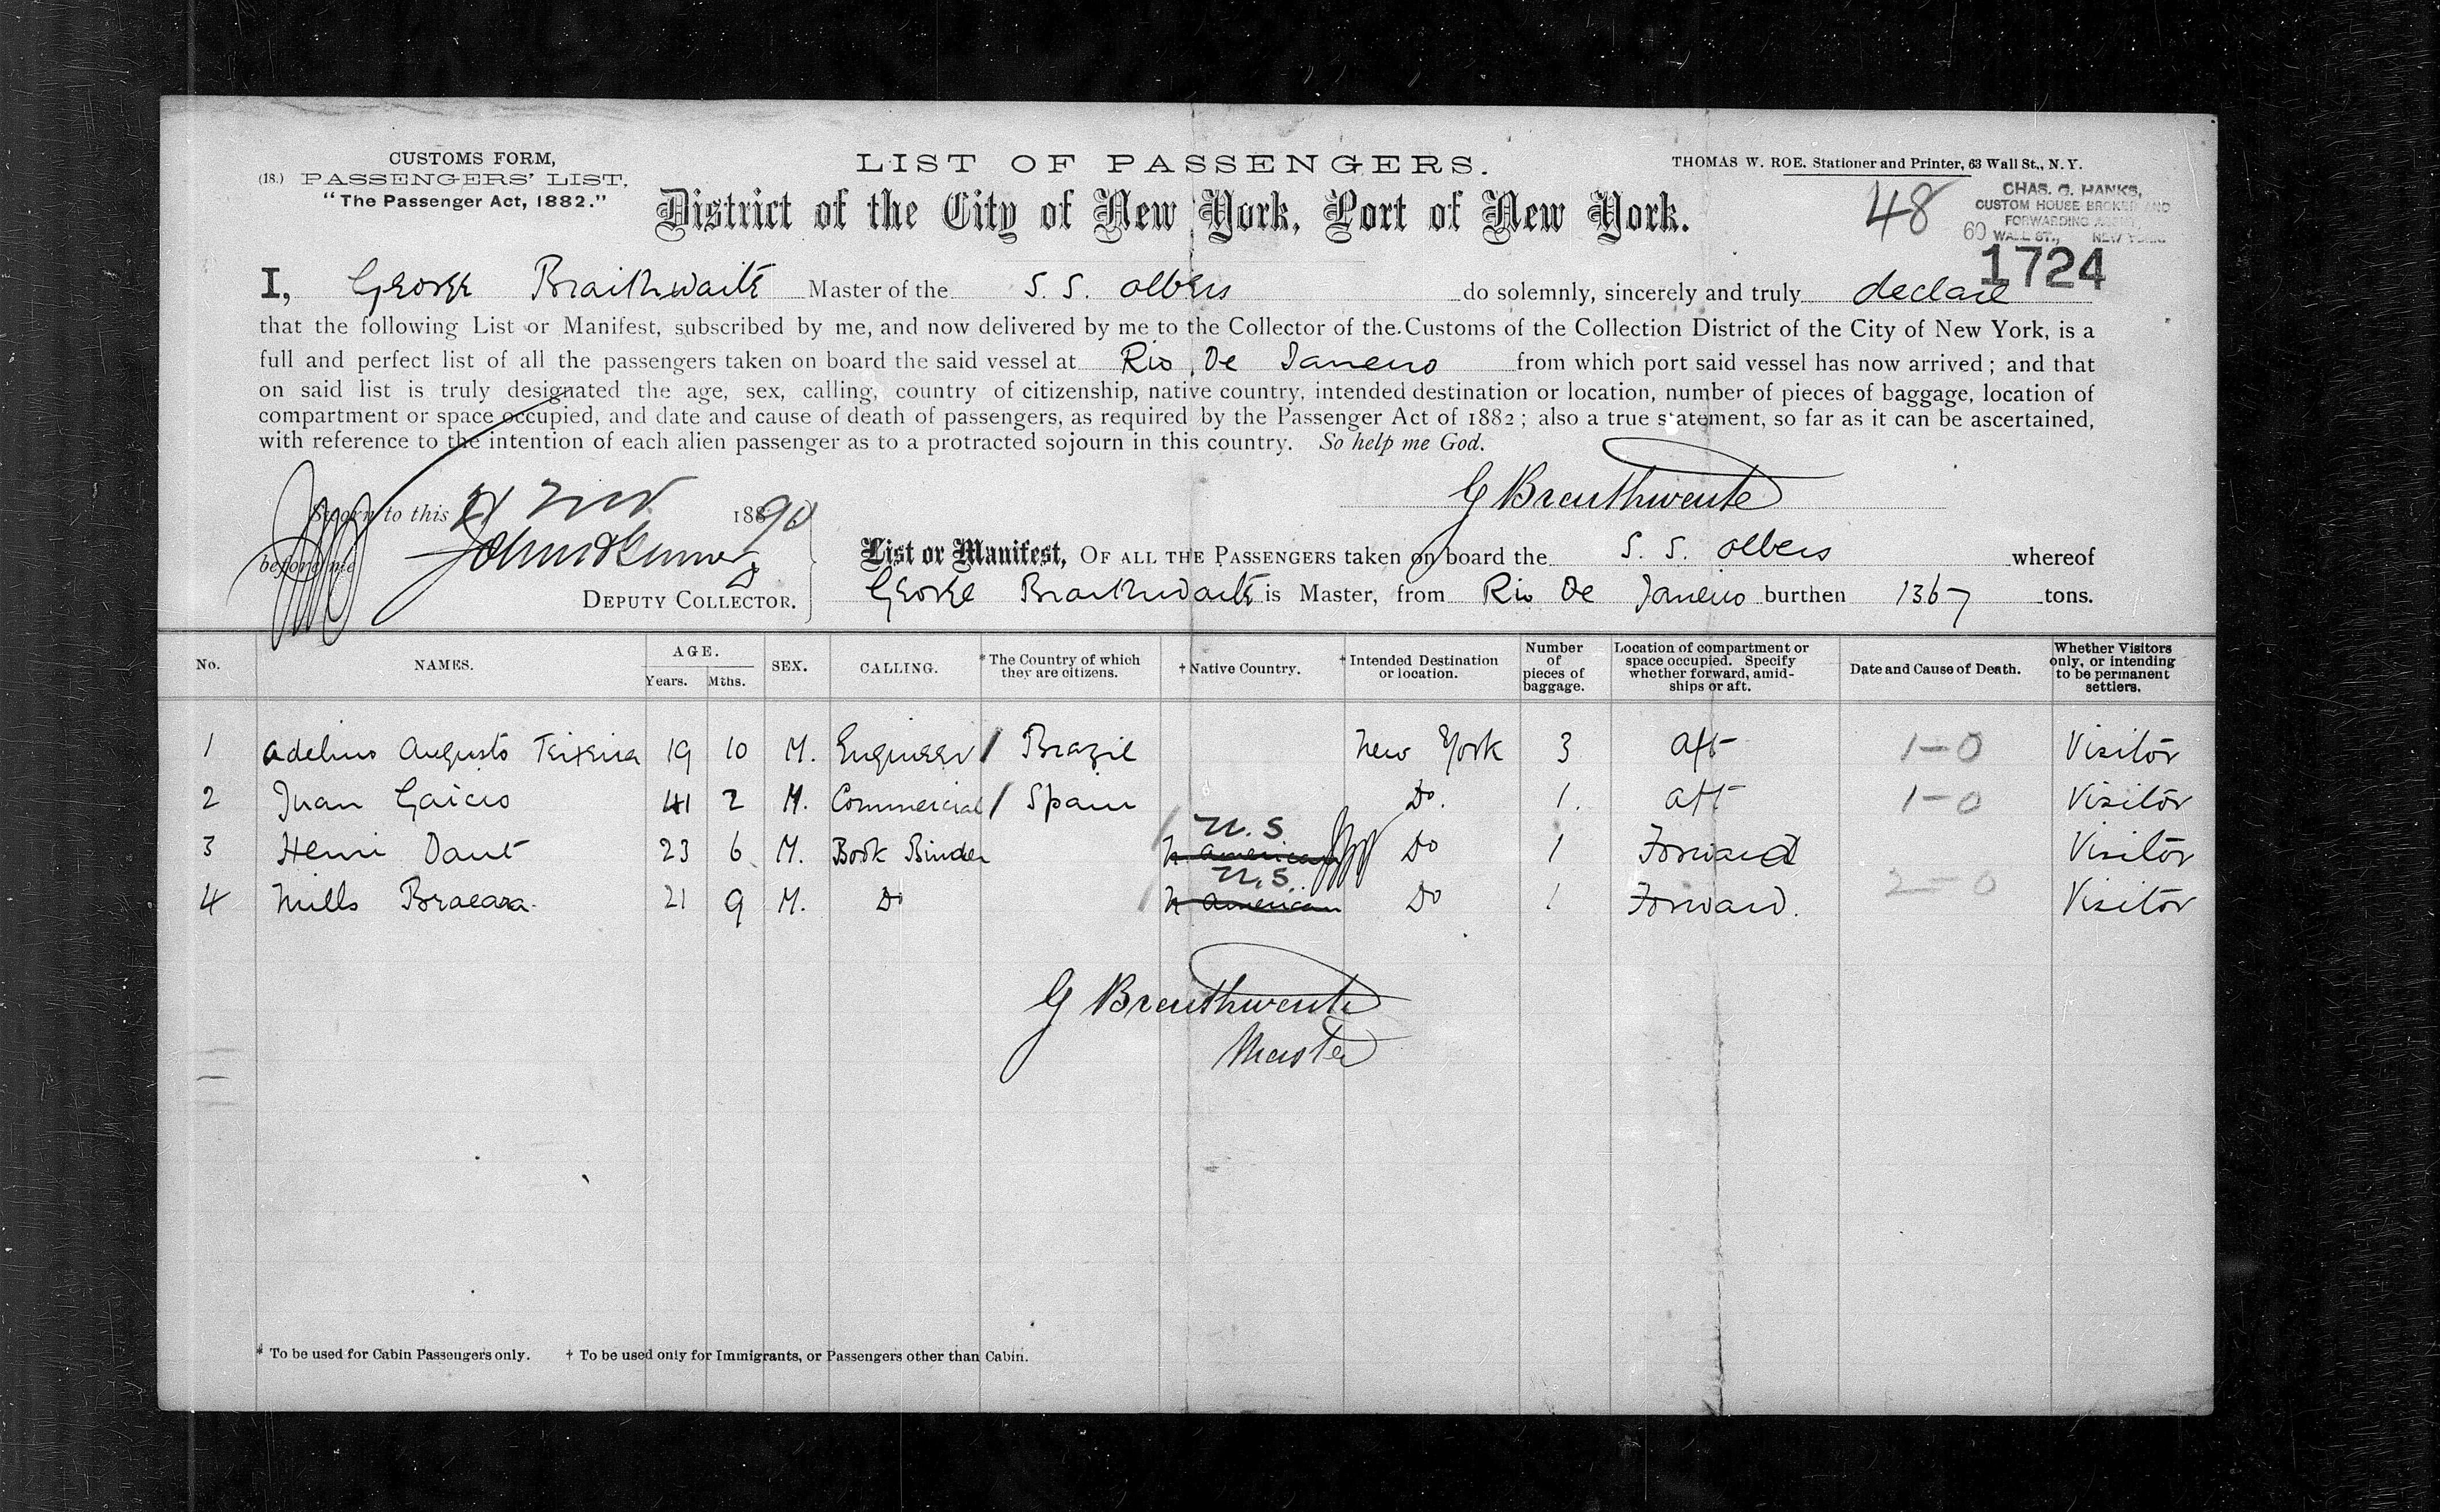 CUSTOMS FORM,
(18.) PASSENGERS' LIST,
"The Passenger Act, 1882."
LIST OF PASSENGERS.
District of the City of New York, Port of New York.
THOMAS W. ROE. Stationer and Printer, 63 Wall St., N. Y.
48
CHAS. G. HANKS,
CUSTOM HOUSE BROKER AND
FORWARDING AGENT,
60 WALL ST., NEW YORK.
1724
I, George Braithwaite Master of the S. S. Olbers do solemnly, sincerely and truly declare
that the following List or Manifest, subscribed by me, and now delivered by me to the Collector of the Customs of the Collection District of the City of New York, is a
full and perfect list of all the passengers taken on board the said vessel at Rio De Janeiro from which port said vessel has now arrived; and that
on said list is truly designated the age, sex, calling, country of citizenship, native country, intended destination or location, number of pieces of baggage, location of
compartment or space occupied, and date and cause of death of passengers, as required by the Passenger Act of 1882; also a true statement, so far as it can be ascertained,
with reference to the intention of each alien passenger as to a protracted sojourn in this country. So help me God.
G Braithwaite
Sworn to this 21 Nov 1890
before me
DEPUTY COLLECTOR.
List or Manifest, OF ALL THE PASSENGERS taken on board the S. S. Olbers whereof
George Braithwaite is Master, from Rio De Janeiro burthen 1367 tons.
No. NAMES. AGE. Years. Mths. SEX. CALLING. * The Country of which they are citizens. † Native Country. † Intended Destination or location. Number of pieces of baggage. Location of compartment or space occupied. Specify whether forward, amidships or aft. Date and Cause of Death. Whether Visitors only, or intending to be permanent settlers.
1 Adelino Augusto Teixeira 19 10 M. Engineer / Brazil New York 3 Aft 1-0 Visitor
2 Juan Garcio 41 2 M. Commercial / Spain Do. 1. Aft 1-0 Visitor
U.S
3 Henri Daut 23 6 M. Book Binder N. American Do 1 Forward Visitor
U.S. 2-0
4 Mills 21 9 M. Do N American Do 1 Forward. Visitor
G Braithwaite
Master
* To be used for Cabin Passengers only. † To be used only for Immigrants, or Passengers other than Cabin.